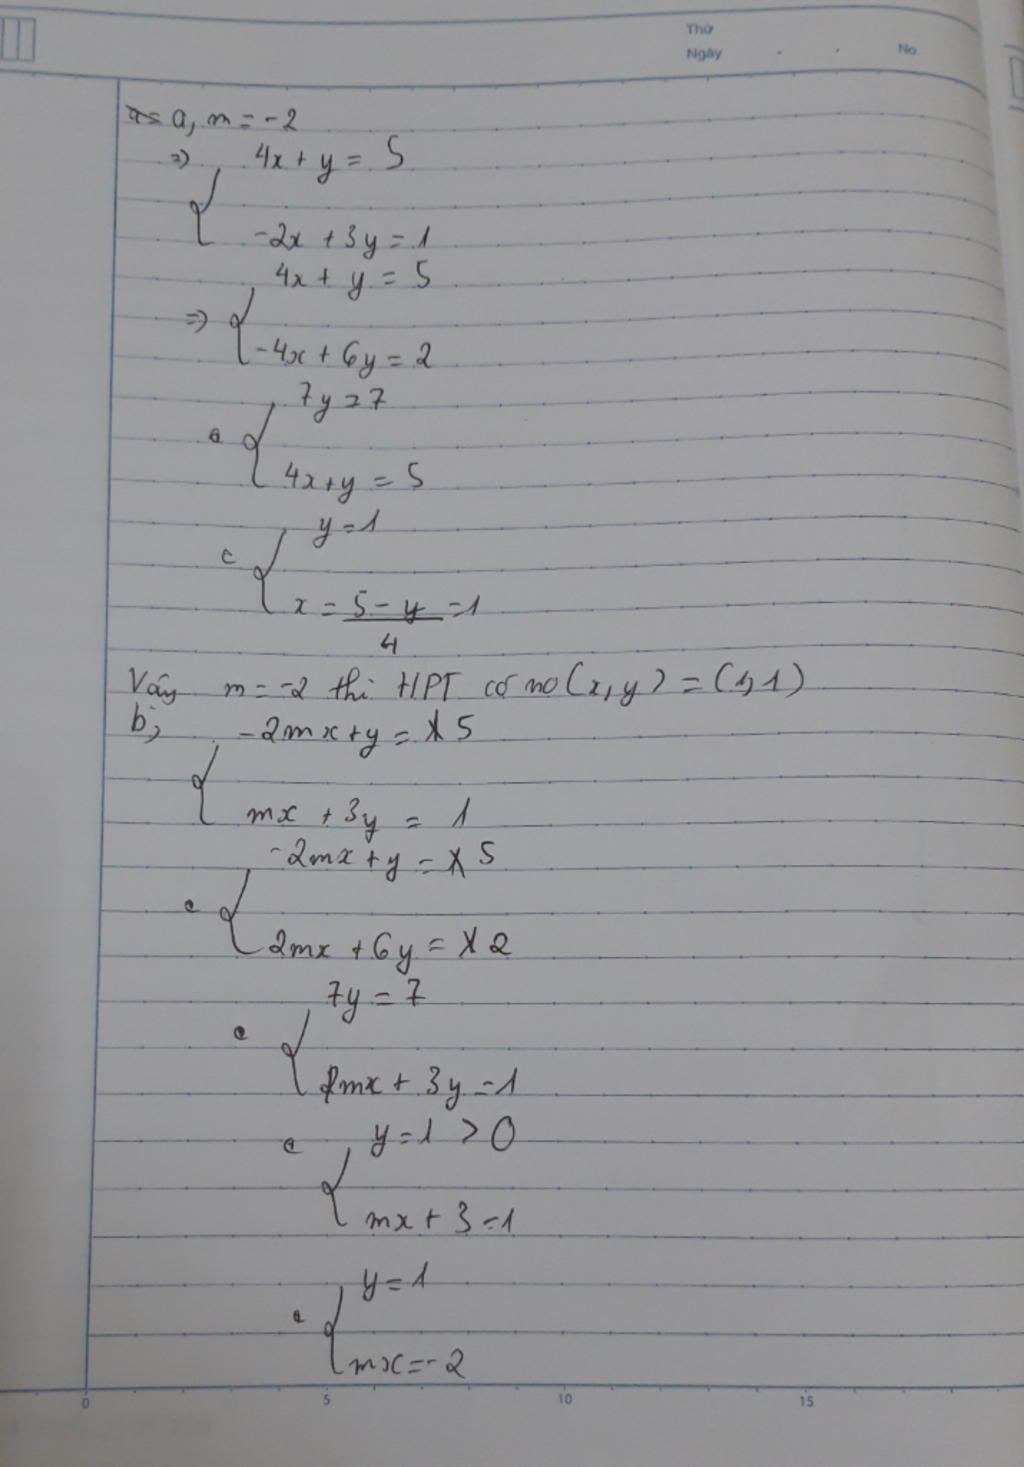 Thứ
Ngày No.
a, m = -2
=> 4x + y = 5
-2x + 3y = 1
4x + y = 5
=>
-4x + 6y = 2
7y = 7
4x + y = 5
y = 1
x = 5 - y = 1
4
Vậy m = -2 thì HPT có no (x, y) = (1, 1)
b, -2mx + y = 5
mx + 3y = 1
-2mx + y = 5
2mx + 6y = 2
7y = 7
mx + 3y = 1
y = 1 > 0
mx + 3 = 1
y = 1
mx = -2
0 5 10 15